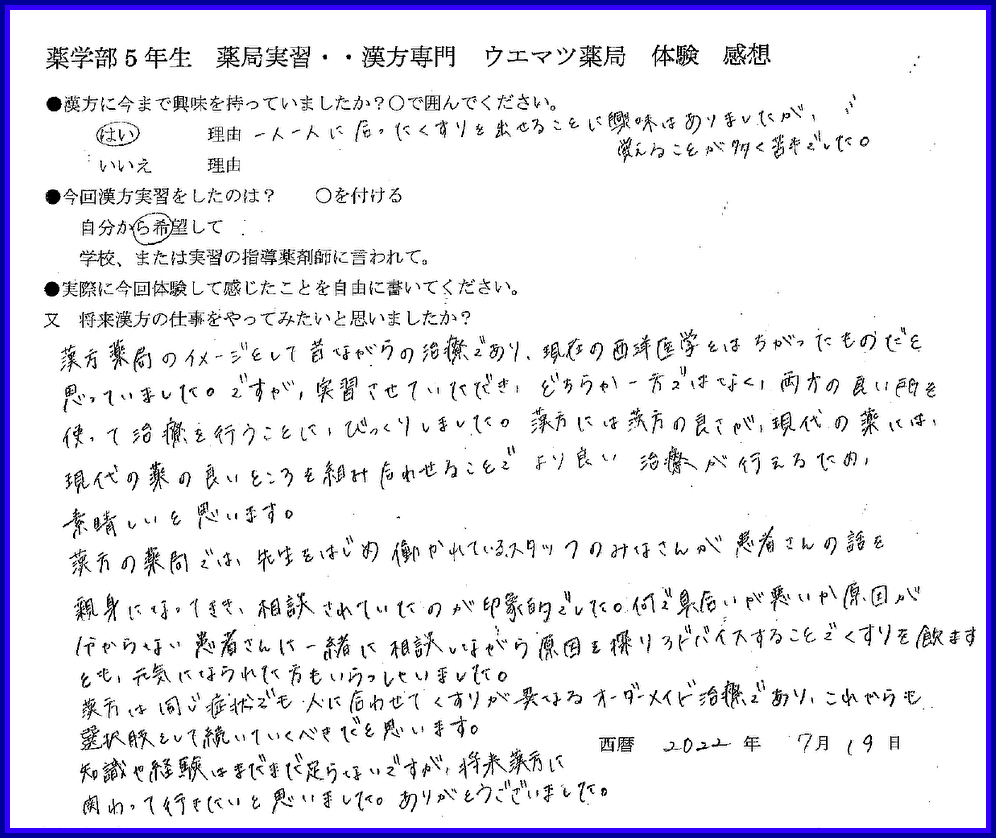 薬学部5年生　薬局実習・・漢方専門　ウエマツ薬局　体験　感想
●漢方に今まで興味を持っていましたか？○で囲んでください。
はい　理由　一人一人に合ったくすりを出せることに興味はありましたが、
覚えることが多く苦手でした。
いいえ　理由
●今回漢方実習をしたのは？　○を付ける
自分から希望して
学校、または実習の指導薬剤師に言われて。
●実際に今回体験して感じたことを自由に書いてください。
又　将来漢方の仕事をやってみたいと思いましたか？
漢方薬局のイメージとして昔ながらの治療であり、現在の西洋医学とはちがったものだと
思っていました。ですが、実習させていただき、どちらか一方ではなく、両方の良い所を
使って治療を行うことに、びっくりしました。漢方には漢方の良さが、現代の薬には、
現代の薬の良いところを組み合わせることでより良い治療が行えるため、
素晴しいと思います。
漢方の薬局では、先生をはじめ働かれているスタッフのみなさんが患者さんの話を
親身になってきき、相談されていたのが印象的でした。何で具合いが悪いか原因が
分からない患者さんに一緒に相談しながら原因を探りアドバイスすることでくすりを飲まず
とも、元気になられた方もいらっしゃいました。
漢方は同じ症状でも人に合わせてくすりが異なるオーダーメイド治療であり、これからも
選択肢として続いていくべきだと思います。
西暦　2022年　7月19日
知識や経験はまだまだ足らないですが、将来漢方に
関わって行きたいと思いました。ありがとうございました。